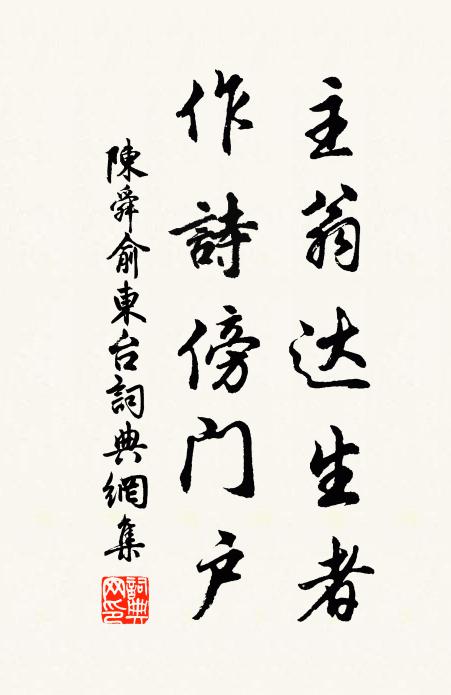 主翁达生者
作詩傍门户
陳舜俞東台詞典網集
詞典網印